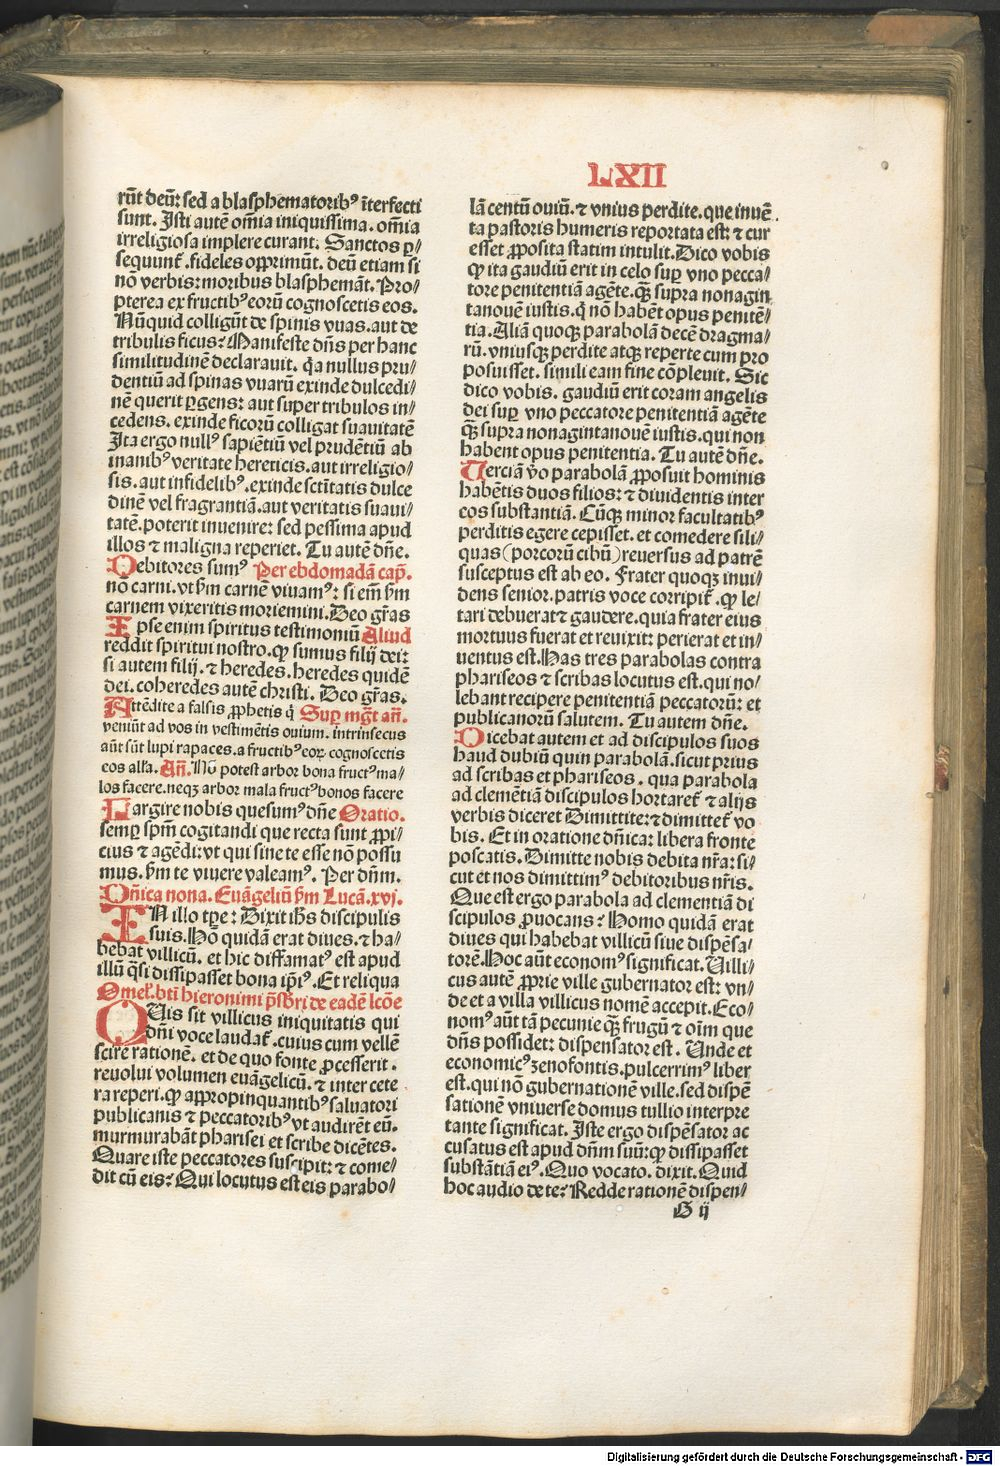 LXII
rūt deū: sed a blasphematoribꝰ īterfecti
sunt. Isti autē om̄ia iniquissima. om̄ia
irreligiosa implere curant. Sanctos ꝑ/
sequunt̄. fideles opprimūt. deū etiam si
nō verbis: moribus blasphemāt. Pro/
pterea ex fructibꝰ eorū cognoscetis eos.
Nūquid colligūt de spinis vuas. aut de
tribulis ficus: Manifeste dn̄s per hanc
similitudinē declarauit. qͣ nullus pru/
dentiū ad spinas vuarū exinde dulcedi/
nē querit ꝑgens: aut super tribulos in/
cedens. exinde ficorū colligat suauitatē
Ita ergo nullꝰ sapiētiū vel prudētiū ab
inanibꝰ veritate hereticis. aut irreligio/
sis. aut infidelibꝰ. exinde sctītatis dulce
dinē vel fragrantiā. aut veritatis suaui/
tatē. poterit inuenire: sed pessima apud
illos ⁊ maligna reperiet. Tu autē dn̄e.
Debitores sumꝰ Per ebdomadā cap̄.
nō carni. vt ẜm carnē viuamꝰ: si em̄ ẜm
carnem vixeritis moriemini. Deo gr̄as
Ipse enim spiritus testimoniū Aliud
reddit spiritui nostro. ꝙ sumus filij dei:
si autem filij. ⁊ heredes. heredes quidē
dei. coheredes autē christi. Deo gr̄as.
Attēdite a falsis ꝓphetis q̄ Suꝑ mḡt an̄.
veniūt ad vos in vestimētis ouium. intrinsecus
aūt sūt lupi rapaces. a fructibꝰ eoꝝ cognoscetis
eos all̄a. An̄. Nō potest arbor bona fructꝰ ma/
los facere. neqꝫ arbor mala fructꝰ bonos facere
Largire nobis quesumꝰ dn̄e Oratio.
semꝑ spm̄ cogitandi que recta sunt ꝓpi/
cius ⁊ agēdi: vt qui sine te esse nō possu
mus. ẜm te viuere valeamꝰ. Per dn̄m.
Dn̄ica nona. Euāgeliū ẜm Lucā. xvj.
IN illo tp̄e: Dixit ih̄s discipulis
suis. Hō quidā erat diues. ⁊ ha/
bebat villicū. et hic diffamatꝰ est apud
illū qͣsi dissipasset bona ip̄iꝰ. Et reliqua
Omel̄. bt̄i hieronimi p̄sb̄ri de eadē lc̄oe
QUis sit villicus iniquitatis qui
dn̄i voce laudat̄. cuius cum vellē
scire rationē. et de quo fonte ꝓcesserit.
reuolui volumen euāgelicū. ⁊ inter cete
ra reperi. ꝙ appropinquantibꝰ saluatori
publicanis ⁊ peccatoribꝰ vt audirēt eū.
murmurabāt pharisei et scribe dicētes.
Quare iste peccatores suscipit: ⁊ come/
dit cū eis: Qui locutus est eis parabo/
lā centū ouiū. ⁊ vnius perdite. que inuē
ta pastoris humeris reportata est: ⁊ cur
esset ꝓposita statim intulit. Dico vobis
ꝙ ita gaudiū erit in celo suꝑ vno pecca/
tore penitentiā agēte. qꝫ̄ supra nonagin
tanouē iustis. q̄ nō habēt opus penitē/
tia. Aliā quoqꝫ parabolā decē dragma/
rū. vniusqꝫ perdite atqꝫ reperte cum pro
posuisset. simili eam fine cōpleuit. Sic
dico vobis. gaudiū erit coram angelis
dei suꝑ vno peccatore penitentiā agēte
qꝫ̄ supra nonagintanouē iustis. qui non
habent opus penitentia. Tu autē dn̄e.
Terciā v̄o parabolā ꝓposuit hominis
habētis duos filios: ⁊ diuidentis inter
eos substantiā. Cūqꝫ minor facultatibꝰ
perditis egere cepisset. et comedere sili/
quas (porcorū cibū) reuersus ad patrē
susceptus est ab eo. Frater quoqꝫ inui/
dens senior. patris voce corripit̄. ꝙ le/
tari debuerat ⁊ gaudere. quia frater eius
mortuus fuerat et reuixit: perierat et in/
uentus est. Has tres parabolas contra
phariseos ⁊ scribas locutus est. qui no/
lebant recipere penitentiā peccatorū: et
publicanorū salutem. Tu autem dn̄e.
Dicebat autem et ad discipulos suos
haud dubiū quin parabolā. sicut prius
ad scribas et phariseos. qua parabola
ad clemētiā discipulos hortaret̄ ⁊ alijs
verbis diceret Dimittite: ⁊ dimittet̄ vo
bis. Et in oratione dn̄ica: libera fronte
poscatis. Dimitte nobis debita nr̄a: si/
cut et nos dimittimꝰ debitoribus nr̄is.
Que est ergo parabola ad clementiā di
scipulos ꝓuocans: Homo quidā erat
diues qui habebat villicū siue dispēsa/
torē. Hoc aūt economꝰ significat. Villi/
cus autē ꝓprie ville gubernator est: vn/
de et a villa villicus nomē accepit. Eco/
nomꝰ aūt tā pecunie qꝫ̄ frugū ⁊ oīm que
dn̄s possidet: dispensator est. Unde et
economicꝰ zenofontis. pulcerrimꝰ liber
est. qui nō gubernationē ville. sed dispē
sationē vniuerse domus tullio interpre
tante significat. Iste ergo dispēsator ac
cusatus est apud dn̄m suū: ꝙ dissipasset
substātiā eiꝰ. Quo vocato. dixit. Quid
hoc audio de te: Redde rationē dispen/
G ij
Digitalisierung gefördert durch die Deutsche Forschungsgemeinschaft - DFG